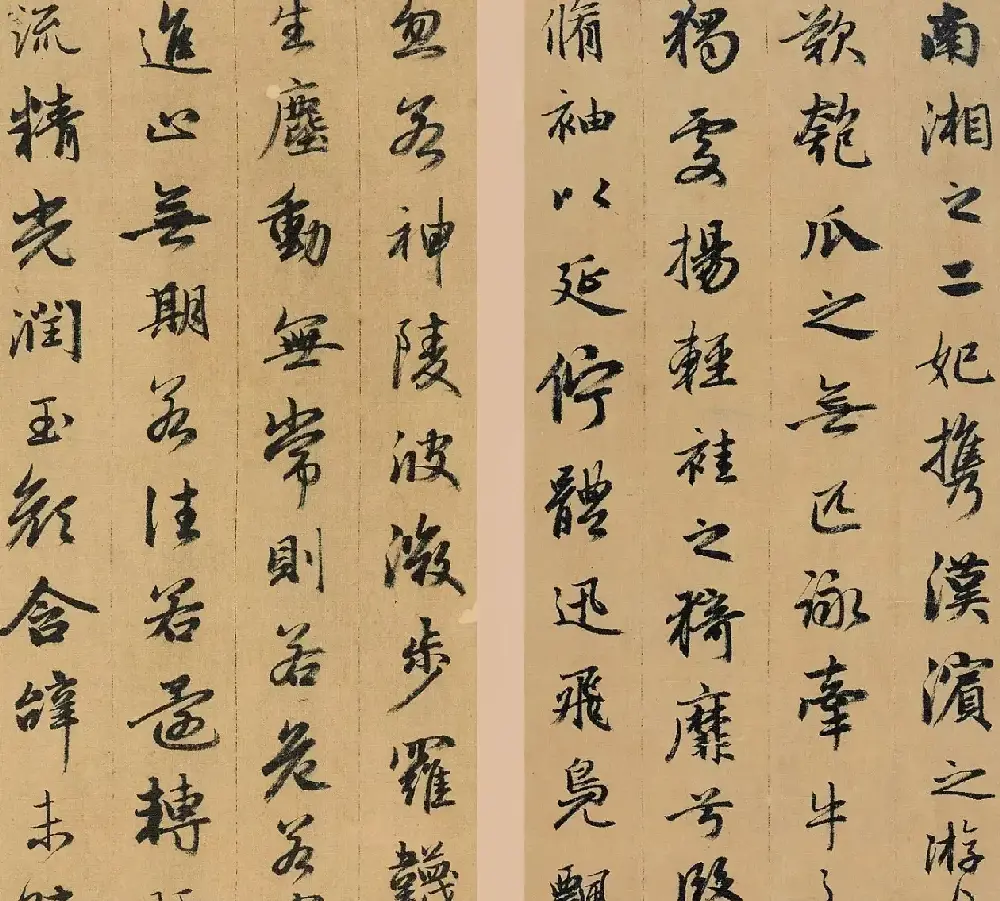 南湘之二妃携漢濱之游
歎匏瓜之無匹詠牽牛
獨處揚輕袿之猗靡兮
脩袖以延佇體迅飛鳧飄
忽若神陵波微步羅韈
生塵動無常則若危若
進止無期若往若還轉
流精光潤玉顏含辭未